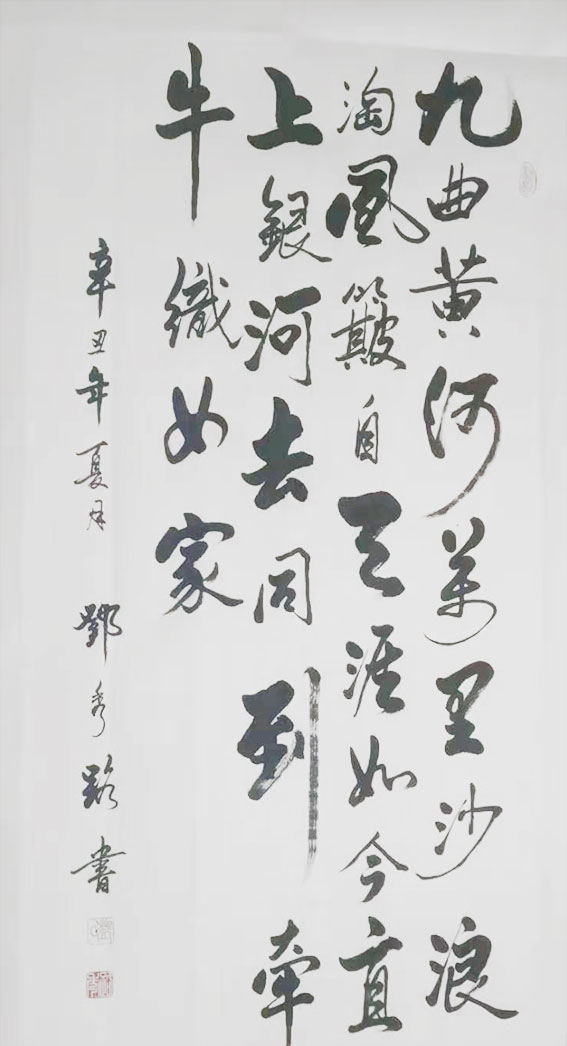 九曲黄河万里沙浪
淘風簸自天涯如今直
上銀河去同到牽
牛織女家
辛丑年夏月 鄧秀路書